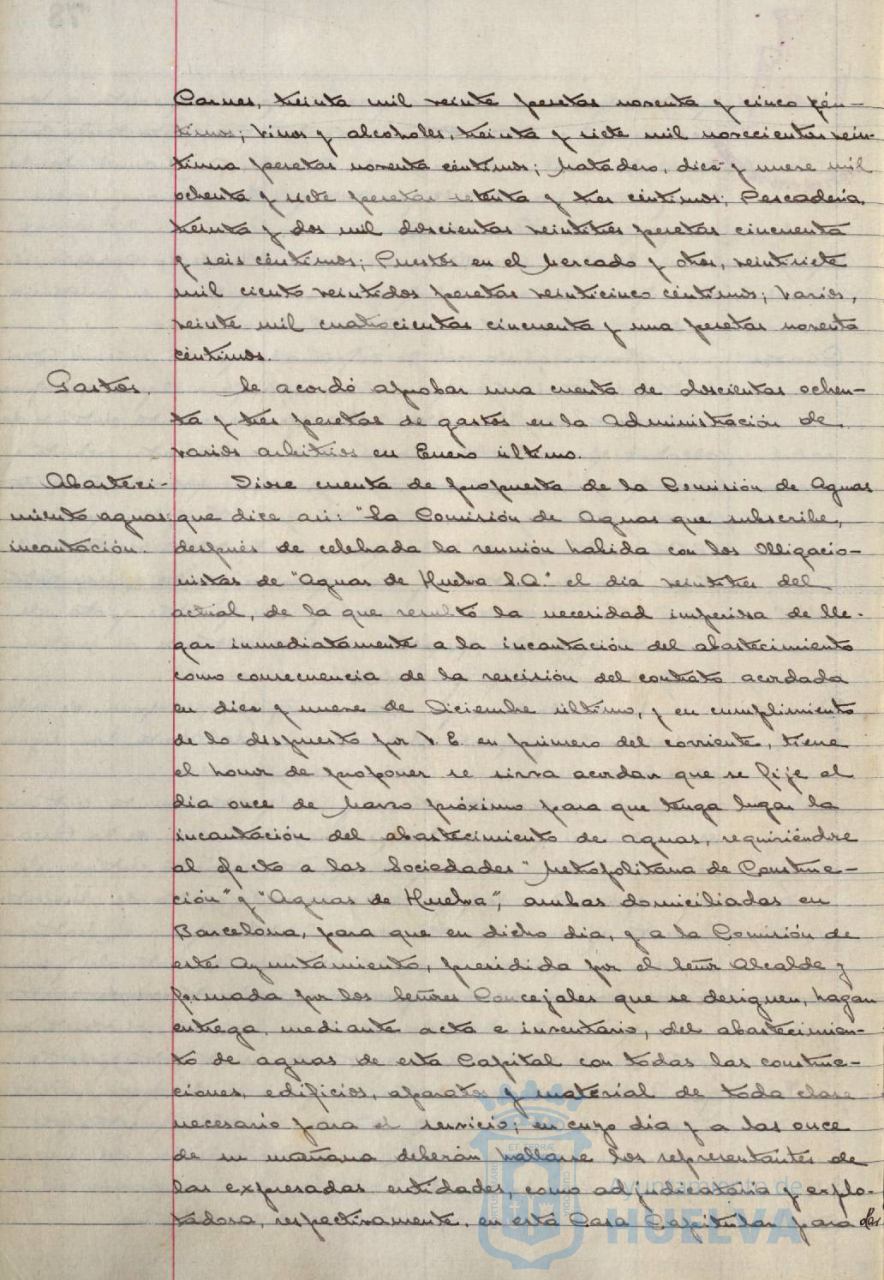 Carnes, treinta mil veinte pesetas noventa y cinco cén-
timos; vinos y alcoholes, treinta y siete mil novecientas vein-
tiuna pesetas noventa céntimos; Matadero, diez y nueve mil
ochenta y siete pesetas setenta y tres céntimos; Pescadería,
treinta y dos mil doscientas veintitrés pesetas cincuenta
y seis céntimos; Puestos en el Mercado y otros, veintisiete
mil ciento veintidos pesetas veinticinco céntimos; varios,
veinte mil cuatrocientas cincuenta y una pesetas noventa
céntimos.
Gastos. Se acordó aprobar una cuenta de doscientas ochen-
ta y tres pesetas de gastos en la Administración de
varios arbitrios en Enero último.
Abasteci- Diose cuenta de propuesta de la Comisión de Aguas
miento aguas: que dice así: "La Comisión de Aguas que subscribe,
incautación. después de celebrada la reunión habida con los Obligacio-
nistas de "Aguas de Huelva S.A." el día veintitres del
actual, de la que resultó la necesidad imperiosa de lle-
gar inmediatamente a la incautación del abastecimiento
como consecuencia de la rescisión del contrato acordada
en diez y nueve de Diciembre último, y en cumplimiento
de lo dispuesto por V. E. en primero del corriente, tiene
el honor de proponer se sirva acordar que se fije el
día once de Marzo próximo para que tenga lugar la
incautación del abastecimiento de aguas, requiriéndose
al efecto a las Sociedades "Metropolitana de Construc-
ción" y "Aguas de Huelva", ambas domiciliadas en
Barcelona, para que en dicho día, y a la Comisión de
este Ayuntamiento, presidida por el Señor Alcalde y
formada por los Señores Concejales que se designen, hagan
entrega, mediante acta e inventario, del abastecimien-
to de aguas de esta Capital con todas las construc-
ciones, edificios, aparatos y material de toda clase
necesario para el servicio; en cuyo día y a las once
de su mañana deberán hallarse los representantes de
las expresadas entidades, como adjudicataria y explo-
tadora, respectivamente, en esta Casa Capitular para
Ayuntamiento de
HUELVA